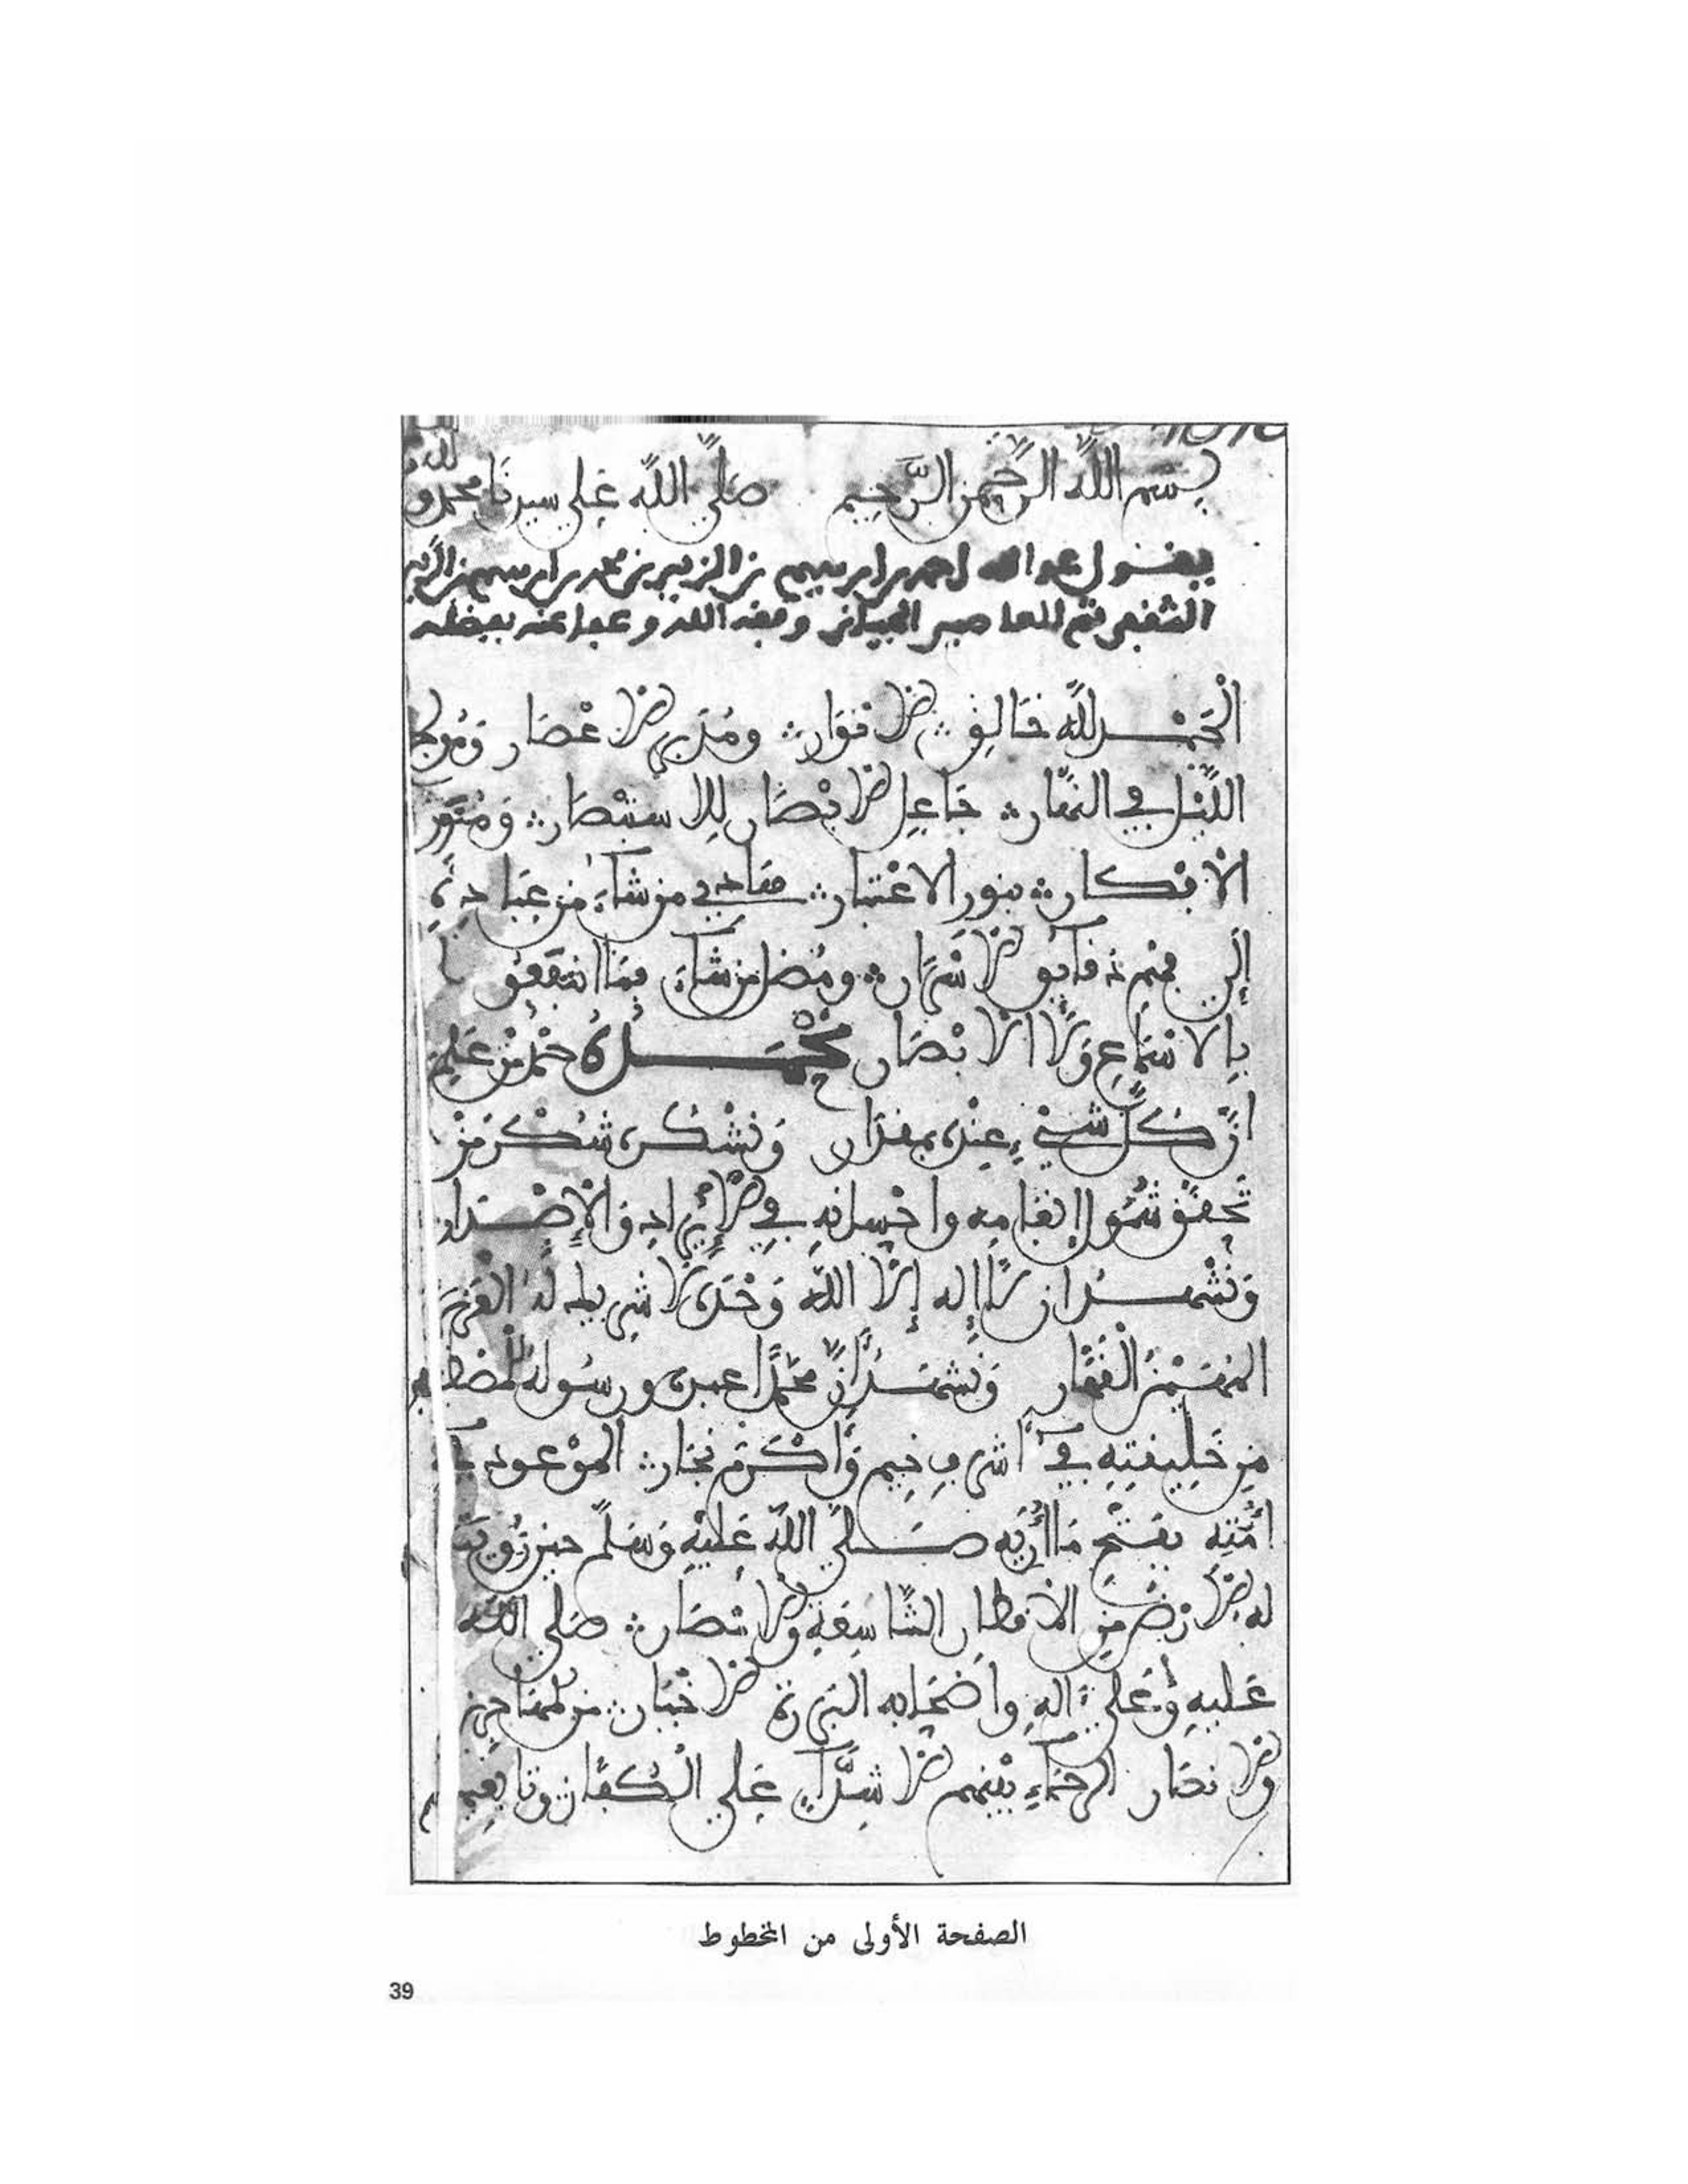 بسم الله الرحمن الرحيم صلى الله على سيدنا محمد و
يقول عبد الله احمد بن ابراهيم بن الزبير بن محمد بن ابراهيم بن الزبير
الثقفي ثم العاصمي الجياني وفقه الله وعفا عنه بفضله
الْحَمْد لله خَالِق الاَنْوَار وَمُدَبِّر الاَعْصَار وَمُولِج
اللَّيْل فِي النَّهَار جَاعِل الاَبْصَار لِلاسْتِبْصَار وَمُنَوِّر
الاَفْكَار بنور الاعْتِبَار هَادِي من شَاءَ من عِبَادِهِ
إلى فهم
بالاسْمَاعِ وَلَا الاَبْصَار نَحْمَدُهُ حَمْدَ مَنْ عَلِمَ
انَّ كلَّ شَيْءٍ عِنْدَهُ بمقْدَار وَنَشْكُره شُكْرَ مَنْ
تَحَقَّقَ شُمُول إنْعَامِه واحْسَانه فِي الإيرَادِ وَالإصْدَار
وَنَشْهَد ان لَّا إله إلَّا اللَّه وَحْدَه لا شريك لَهُ العَزِيز
المُهَيْمِنُ الْقَهَّار وَنَشْهَدُ أنَّ مُحَمَّداً عبده ورسوله المُصْطَفى
مِن خَلِيقَتِهِ فِي اشْرفِ خِيم وَأكْرَم نِجَار الموْعُود
أمَّتِه بِفَتْحِ مَا أُرِيَه صَلَّى اللّه عَلَيْهِ وَسَلَّم حين زُوِيَت
له الاَرْض مِن الاَقطار الشَّاسِعَة وَالامْصَار صَلَّى الله
عَليه وَعَلى ءاله واَصْحَابه البَرَرة الاَخْيَار من المهَاجرين
والاَنصَار الرحَمَاءِ بَيْنهم الاَشِدَّاءِ عَلى الْكُفَّار وتابعيهم
الصفحة الأولى من المخطوط
39